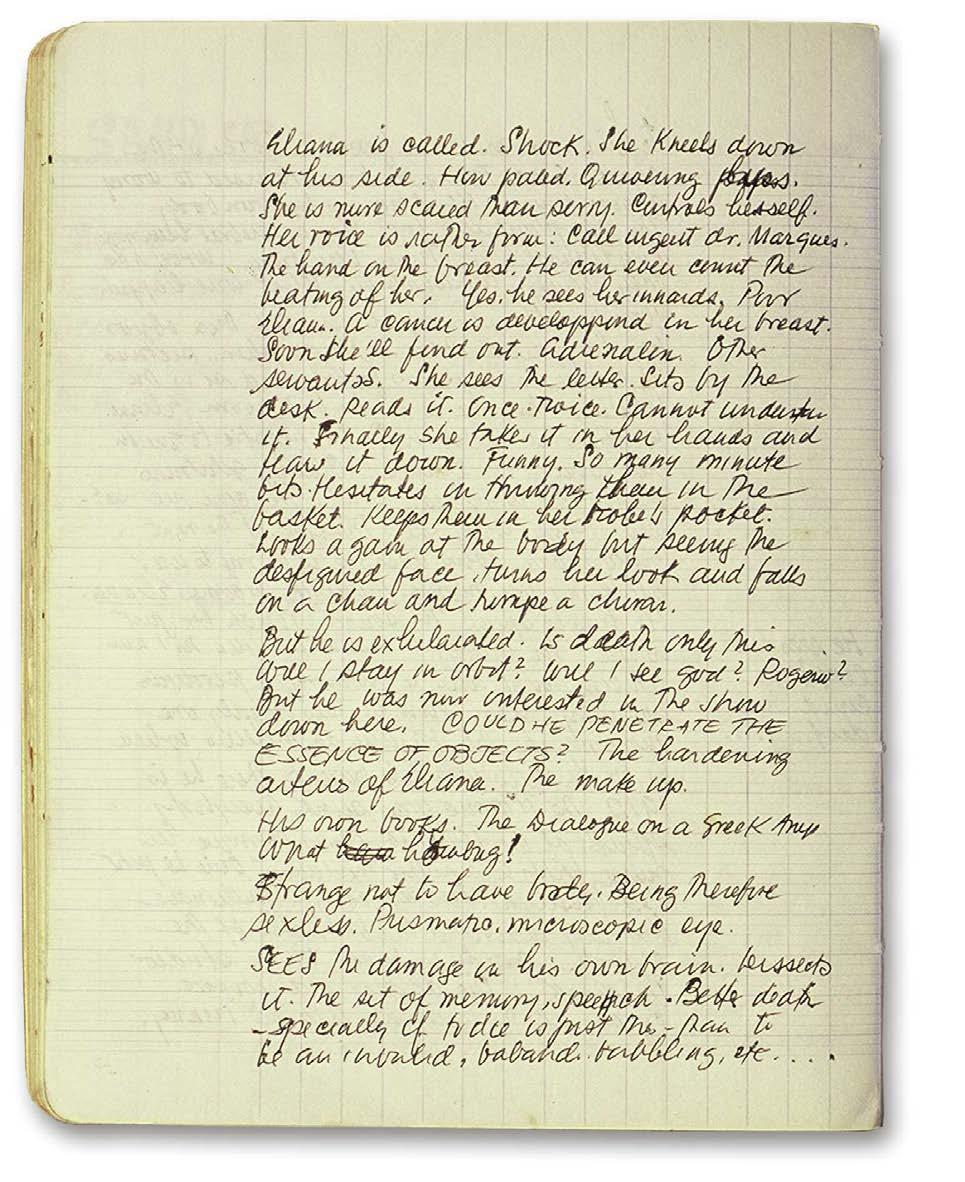 Eliana is called. Shock. She Kneels down
at his side. How paled. Quivering
She is more scared than sorry. Controls herself.
Her voice is rather firm: Call urgent dr. Marques.
The hand on the breast. He can even count the
beating of her. Yes, he sees her innards. Poor
Eliana. A cancer is developpind in her breast.
Soon she'll find out. Adrenalin. Other
servants. She sees the letter. Sits by the
desk. Reads it. Once. Twice. Cannot
it. Finally she takes it in her hands and
tears it down. Funny. So many minute
bits. Hesitates in throwing them in the
basket. Keeps them in her robe's pocket.
Looks again at the body but seeing the
desfigured face, turns her look and falls
on a chair and rompe a chorar.
But he is exhilarated. Is death only this
Will I stay in orbit? Will I see god? Rogerio?
But he was now interested in the show
down here. COULD HE PENETRATE THE
ESSENCE OF OBJECTS? The hardening
arteries of Eliana. The make up.
His own books. The Dialogue on a Greek
What humbug!
Strange not to have body. Being therefore
sexless. Prismatic, microscopic eye.
SEES the damage in his own brain. Dissects
it. The set of memory, speech. Better death
- specially if to die is just this - than to
be an invalid, babando. babbling, etc....